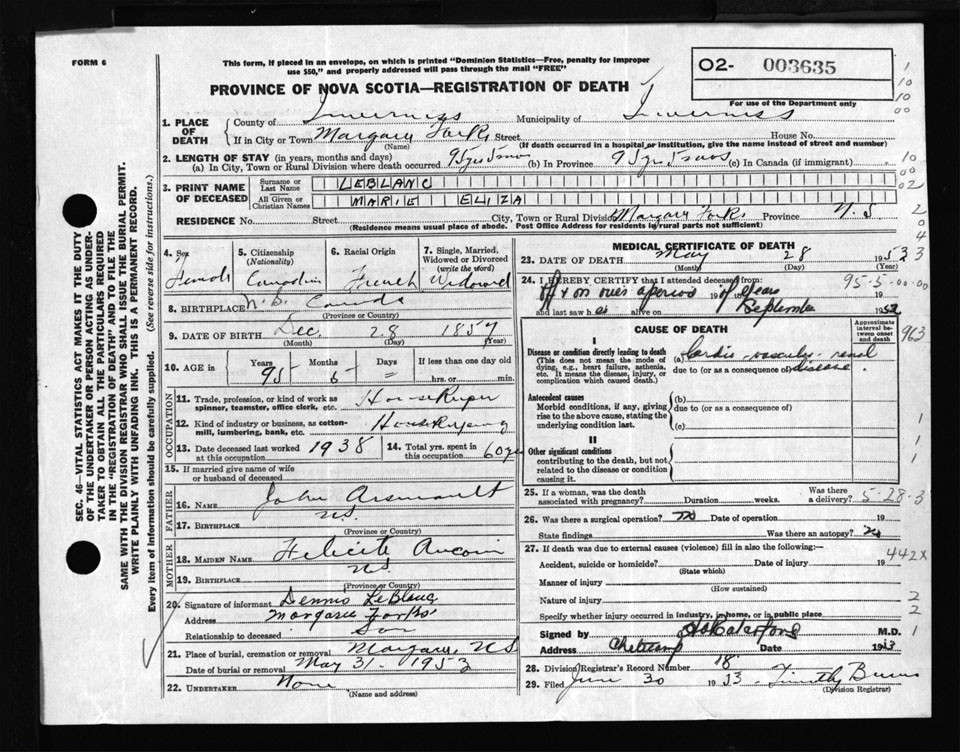 FORM 6
This form, if placed in an envelope, on which is printed "Dominion Statistics—Free, penalty for improper
use $50," and properly addressed will pass through the mail "FREE"
O2- 003635
For use of the Department only
PROVINCE OF NOVA SCOTIA—REGISTRATION OF DEATH
1. PLACE OF DEATH
County of Inverness Municipality of Inverness
If in City or Town Margaree Forks Street House No.
(Name) (If death occurred in a hospital or institution, give the name instead of street and number)
2. LENGTH OF STAY (in years, months and days)
(a) In City, Town or Rural Division where death occurred 95 yrs 5 mos (b) In Province 95 yrs 5 mos (c) In Canada (if immigrant)
3. PRINT NAME OF DECEASED
Surname or Last Name LEBLANC
All Given or Christian Names MARIE ELIZA
RESIDENCE No. Street City, Town or Rural Division Margaree Forks Province N.S
(Residence means usual place of abode. Post Office Address for residents in rural parts not sufficient)
4. Sex Female
5. Citizenship (Nationality) Canadian
6. Racial Origin French
7. Single, Married, Widowed or Divorced (write the word) Widowed
8. BIRTHPLACE N.S. Canada
(Province or Country)
9. DATE OF BIRTH Dec 28 1857
(Month) (Day) (Year)
10. AGE in Years 95 Months 5 Days — If less than one day hrs. or min.
OCCUPATION
11. Trade, profession, or kind of work as spinner, teamster, office clerk, etc. HouseKeeper
12. Kind of industry or business, as cotton-mill, lumbering, bank, etc. HouseKeeping
13. Date deceased last worked at this occupation 1938
14. Total yrs. spent in this occupation 60 yrs
15. If married give name of wife or husband of deceased
FATHER
16. NAME John Arsenault
17. BIRTHPLACE N.S.
(Province or Country)
MOTHER
18. MAIDEN NAME Felicite Aucoin
19. BIRTHPLACE N.S.
(Province or Country)
20. Signature of informant Dennis LeBlanc
Address Margaree Forks
Relationship to deceased Son
21. Place of burial, cremation or removal Margaree, N.S
Date of burial or removal May 31 - 1953
22. UNDERTAKER None
(Name and address)
MEDICAL CERTIFICATE OF DEATH
23. DATE OF DEATH May 28 1953
(Month) (Day) (Year)
24. I HEREBY CERTIFY that I attended deceased from:
off & on over a period 19 of years 19
and last saw h alive on September 1952
95-5-00-00
CAUSE OF DEATH
Approximate interval between onset and death
I
Disease or condition directly leading to death
(This does not mean the mode of dying, e.g., heart failure, asthenia, etc. It means the disease, injury, or complication which caused death.)
(a) Cardio-vascular-renal disease.
due to (or as a consequence of)
963
Antecedent causes
Morbid conditions, if any, giving rise to the above cause, stating the underlying condition last.
(b)
due to (or as a consequence of)
(c)
II
Other significant conditions
contributing to the death, but not related to the disease or condition causing it.
25. If a woman, was the death associated with pregnancy? Duration weeks. Was there a delivery?
5-28-3
26. Was there a surgical operation? No Date of operation 19
State findings Was there an autopsy? No
27. If death was due to external causes (violence) fill in also the following:—
442X
Accident, suicide or homicide? Date of injury 19
(State which)
Manner of injury
(How sustained)
Nature of injury
Specify whether injury occurred in industry, in home, or in public place
Signed by M.D.
Address Cheticamp Date 19
28. Division Registrar's Record Number 18
29. Filed June 30 1953 Timothy
(Division Registrar)
SEC. 46—VITAL STATISTICS ACT MAKES IT THE DUTY
OF THE UNDERTAKER OR PERSON ACTING AS UNDER-
TAKER TO OBTAIN ALL THE PARTICULARS REQUIRED
IN THE "REGISTRATION OF DEATH" AND TO FILE THE
SAME WITH THE DIVISION REGISTRAR WHO SHALL ISSUE THE BURIAL PERMIT.
WRITE PLAINLY WITH UNFADING INK. THIS IS A PERMANENT RECORD.
Every item of information should be carefully supplied. (See reverse side for instructions.)